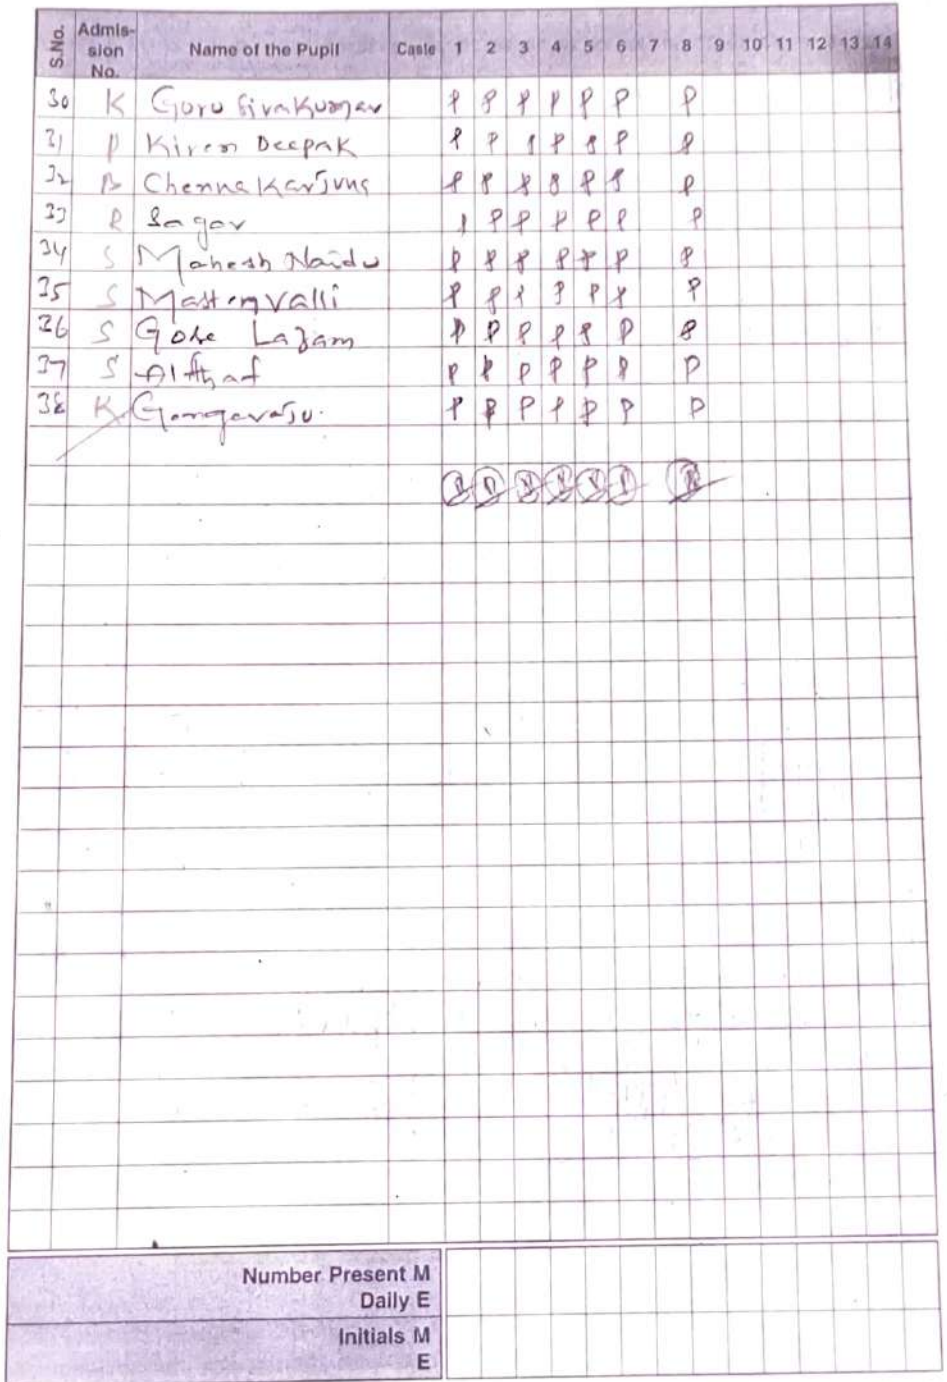 S.No. Admis-sion No. Name of the Pupil Caste 1 2 3 4 5 6 7 8 9 10 11 12 13 14
30 K Guru Siva Kumar P P P P P P P
31 P Kiran Deepak P P P P P P P
32 B Chenna Karjuna P P P P P P P
33 R Sagar P P P P P P P
34 S Mahesh Naidu P P P P P P P
35 S Mastan Valli P P P P P P P
36 S Gose Lazam P P P P P P P
37 S Althaf P P P P P P P
38 K Gangaraju. P P P P P P P
Number Present M
Daily E
Initials M
E